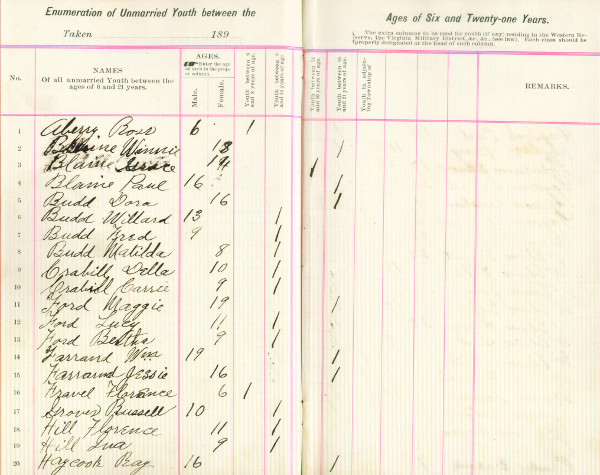 Enumeration of Unmarried Youth between the Ages of Six and Twenty-one Years.
Taken 189
The extra columns to be used for youth (if any) residing in the Western Re-
serve, the Virginia Military District, &c., &c., (see law). Each class should be
properly designated at the head of each column.
No. NAMES AGES. REMARKS.
Of all unmarried Youth between the ages of 6 and 21 years.
Enter the age of each in the proper column.
Male. Female.
Youth between 6 and 8 years of age.
Youth between 8 and 14 years of age.
Youth between 14 and 16 years of age.
Youth between 16 and 21 years of age.
1 Aberry Ross 6 1
2 Blaine Winnie 18 1
3 Blaine Grace 14 1
4 Blaine Paul 16 1
5 Budd Dora 16 1
6 Budd Willard 13 1
7 Budd Fred 9 1
8 Budd Matilda 8 1
9 Crabill Della 10 1
10 Crabill Carrie 9 1
11 Ford Maggie 19 1
12 Ford Lucy 11 1
13 Ford Bertha 9 1
14 Farrand Wm 19 1
15 Farrand Jessie 16 1
16 Fravel Florence 6 1
17 Grover Russell 10 1
18 Hill Florence 11 1
19 Hill Iva 9 1
20 Haycook Ray 16 1